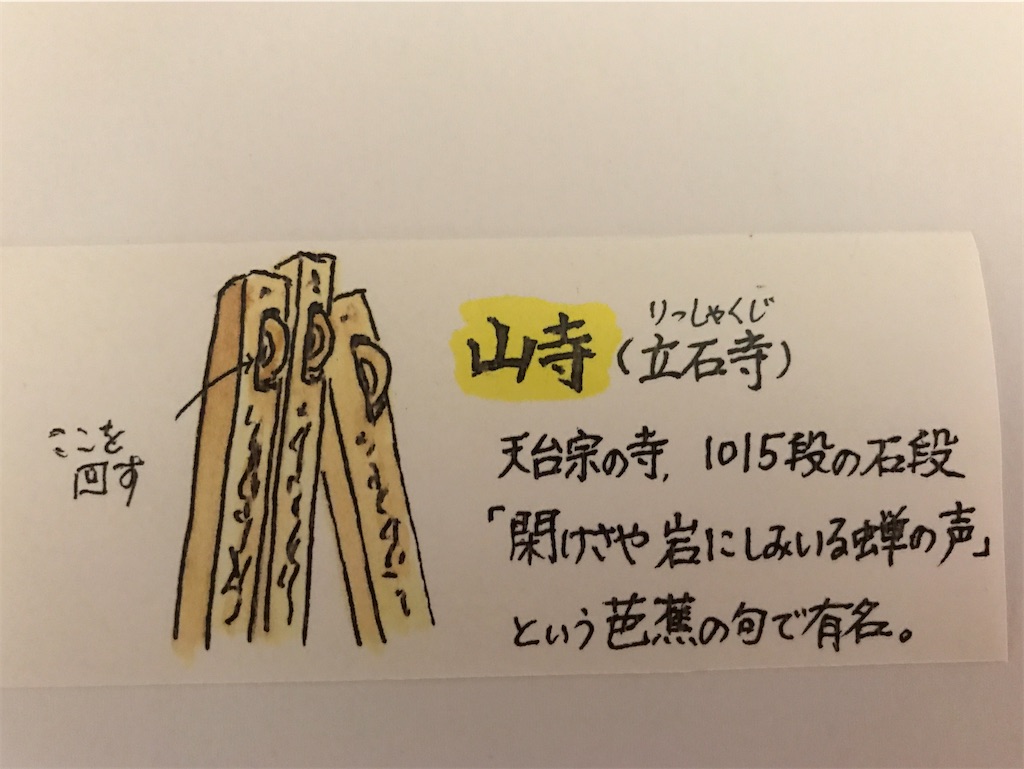 ここを
回す
山寺(立石寺)
りっしゃくじ
天台宗の寺、1015段の石段
「閑けさや 岩にしみいる蝉の声」
という芭蕉の句で有名。